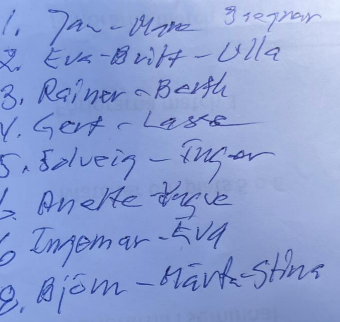 1. Jan - Mona Ragnar
2. Eva-Britt - Ulla
3. Rainer - Berth
4. Gert - Lasse
5. Solveig - Inger
Anette - Yngve
6 Ingemar - Eva
8. Björn - Märta-Stina